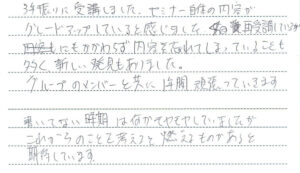 3年振りに受講しました。セミナー自体の内容が
グレードアップしていると感じました。毎日再受講している
にもかかわらず内容を忘れてしまっていることも
多く新しい発見もありました。
グループのメンバーと共に1年間頑張っていきます
書いてない時期は何かモヤモヤしていましたが
これからのことを考えると燃えるものがあると
期待しています